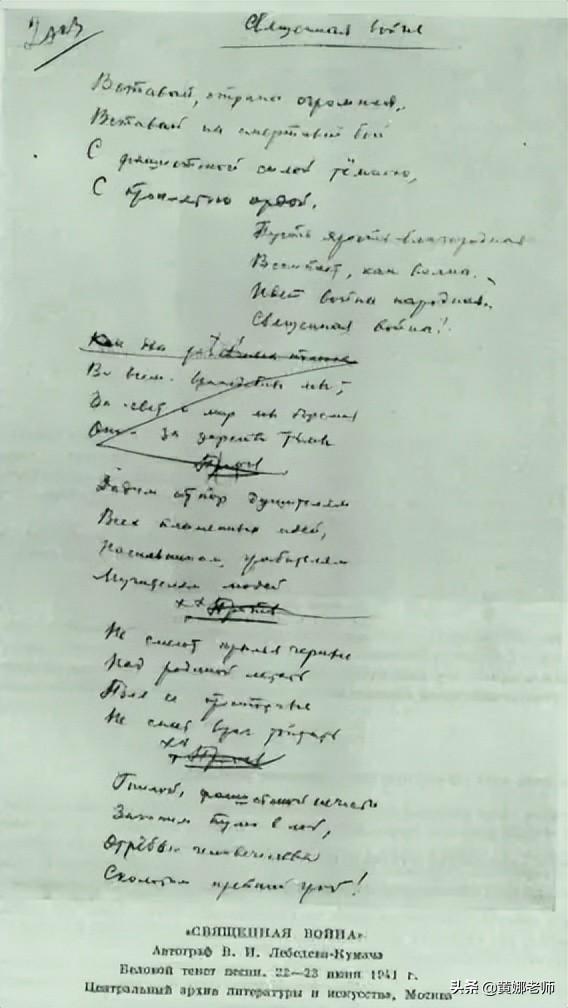 Священная война
Вставай, страна огромная,
Вставай на смертный бой
С фашистской силой тёмною,
С проклятою ордой.
Пусть ярость благородная
Вскипает, как волна.
Идет война народная,
Священная война!
Как два различных полюса
Во всем враждебны мы;
За свет и мир мы боремся
Они за царство тьмы
Припев
Дадим отпор душителям
Всех пламенных идей,
Насильникам, грабителям
Мучителям людей
Припев
Не смеют крылья черные
Над родиной летать
Поля ее просторные
Не смеет враг топтать
Припев
Гнилой фашистской нечисти
Загоним пулю в лоб,
Отребью человечества
Сколотим крепкий гроб!
«СВЯЩЕННАЯ ВОЙНА»
Автограф В. И. Лебедева-Кумача
Беловой текст песни. 22—23 июня 1941 г.
Центральный архив литературы и искусства, Москва
头条 @黄娜老师